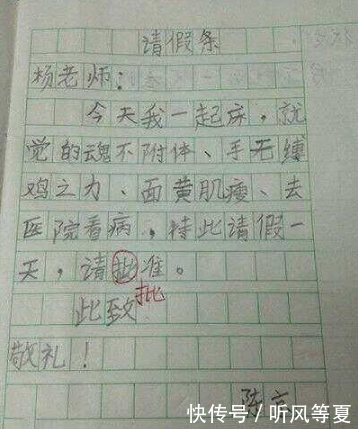 请假条
杨老师：
今天我一起床，就
觉的魂不附体、手无缚
鸡之力、面黄肌瘦、去
医院看病，特此请假一
天，请批准。
批
此致
敬礼！
陈
快传号/听风等夏